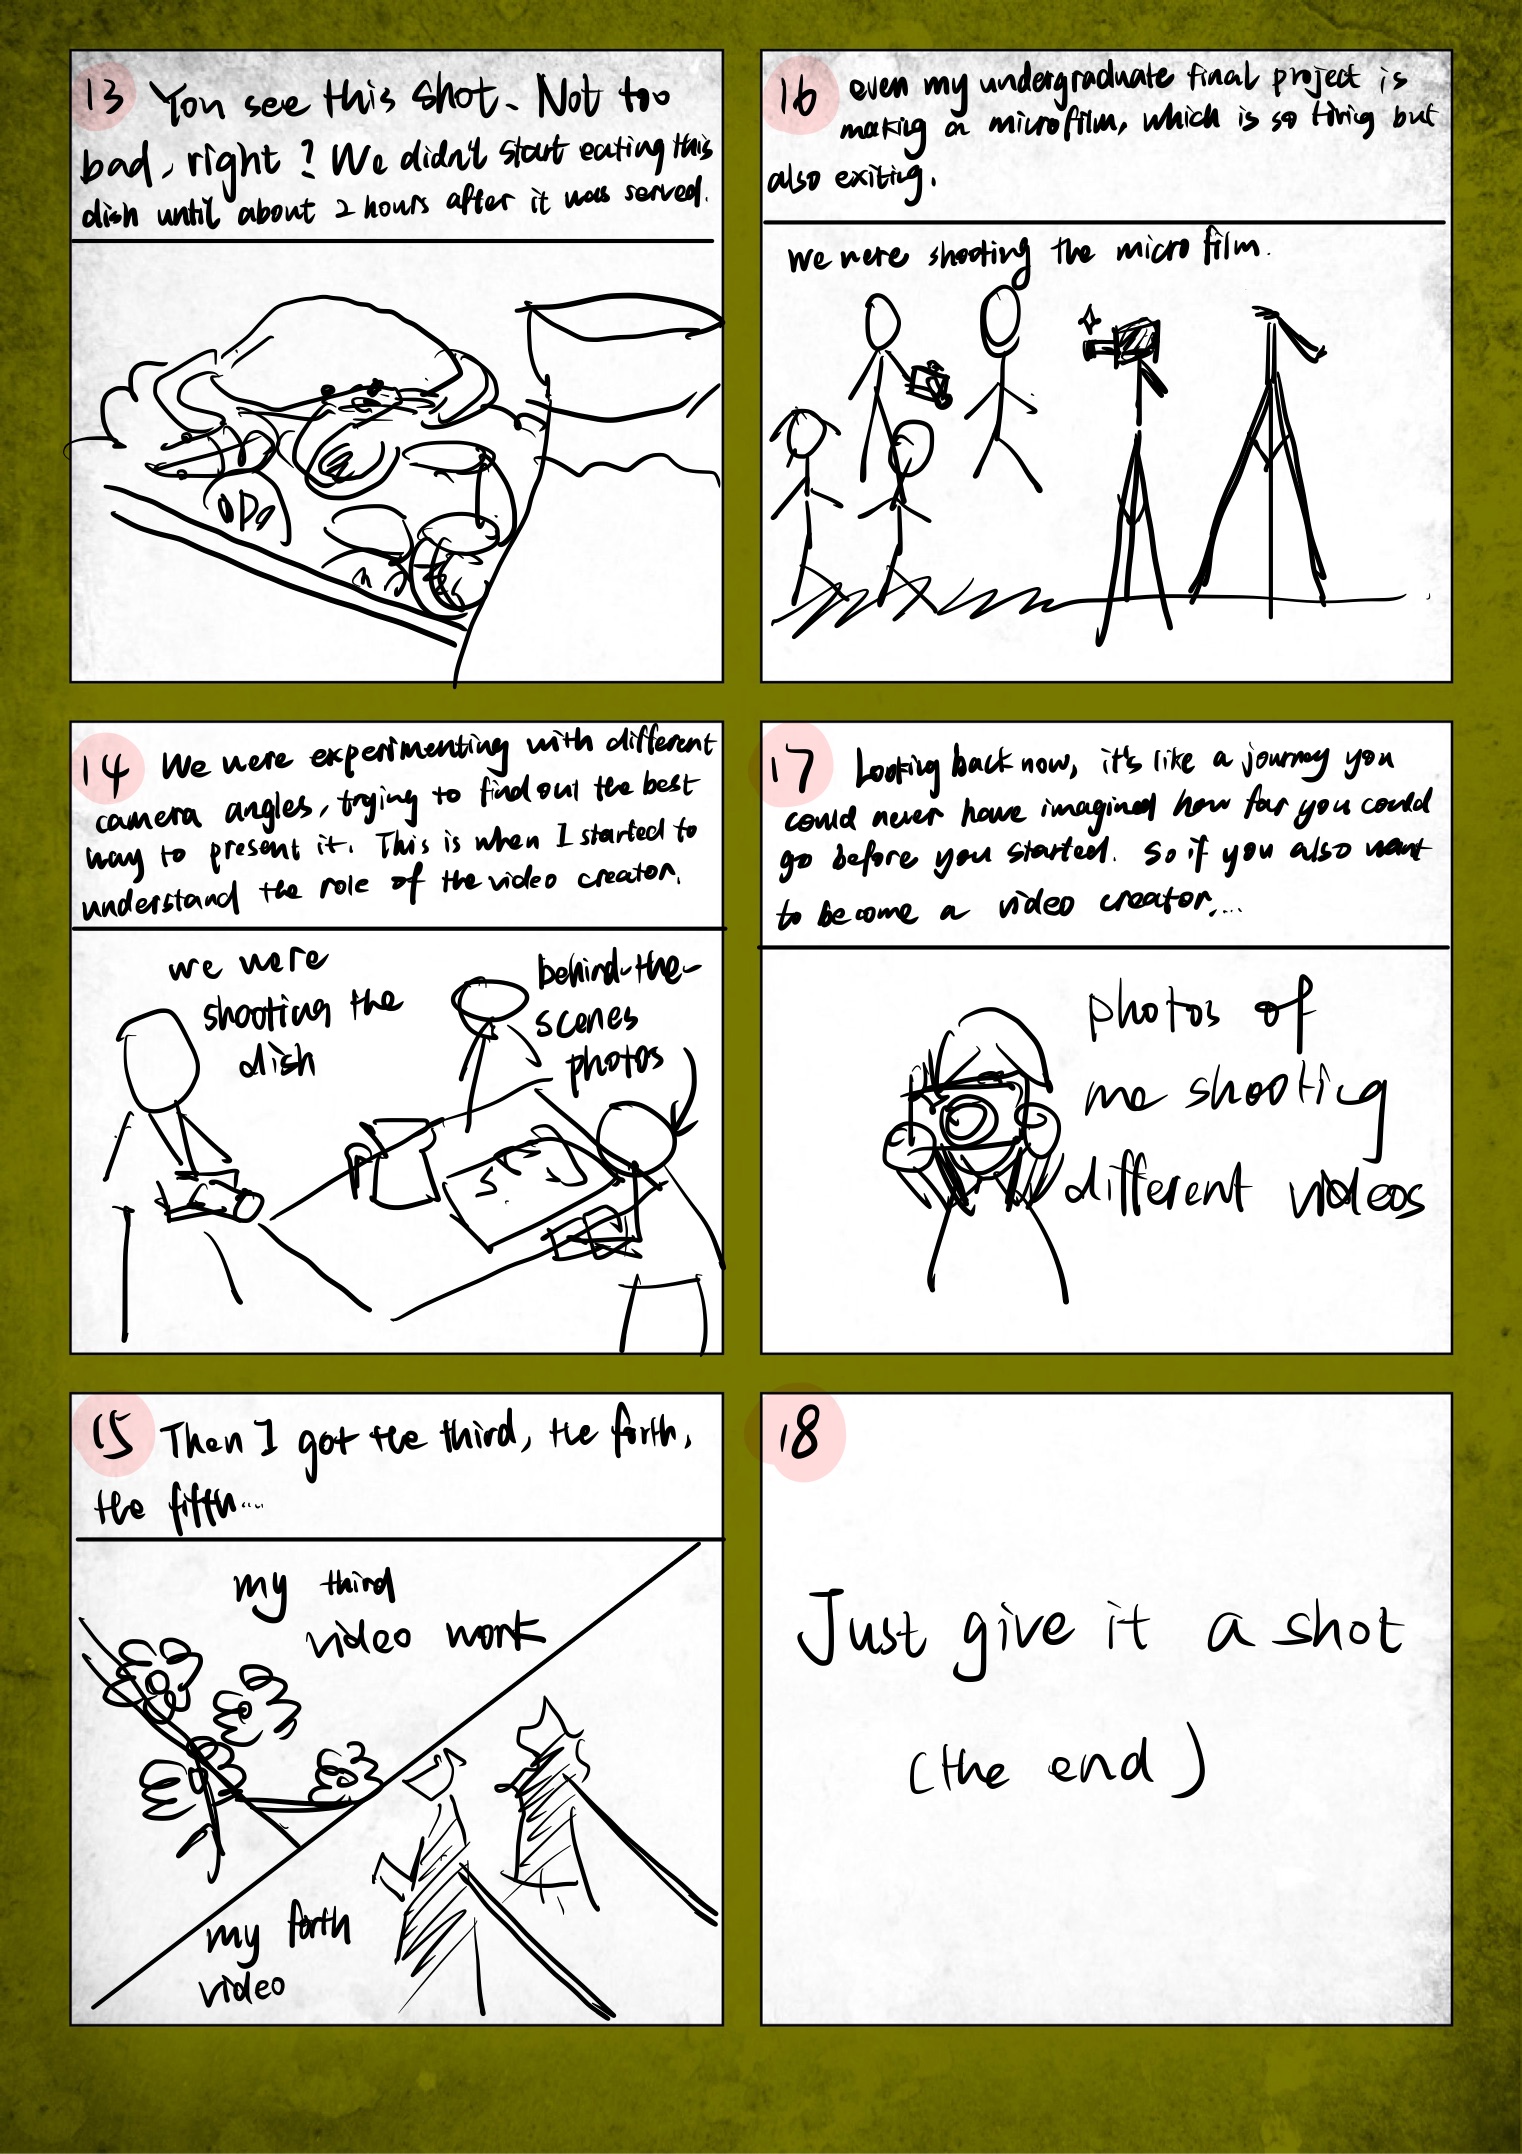 13 You see this shot. Not too
bad, right? We didn't start eating this
dish until about 2 hours after it was served.
14 We were experimenting with different
camera angles, trying to find out the best
way to present it. This is when I started to
understand the role of the video creator.
we were
shooting the
dish
behind-the-
scenes
photos
15 Then I got the third, the forth,
the fifth...
my third
video work
my forth
video
16 even my undergraduate final project is
making a microfilm, which is so tiring but
also exiting.
We were shooting the micro film.
17 Looking back now, it's like a journey you
could never have imagined how far you could
go before you started. So if you also want
to become a video creator....
photos of
me shooting
different videos
18
Just give it a shot
(the end)